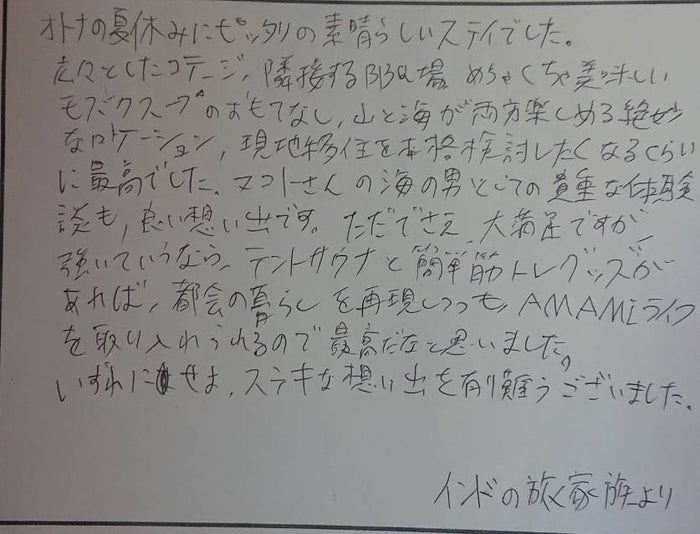 オトナの夏休みにピッタリの素晴らしいステイでした。
広々としたコテージ, 隣接するBBQ場 めちゃくちゃ美味しい
モズクスープのおもてなし, 山と海が両方楽しめる絶妙
なロケーション, 現地移住を本格検討したくなるくらい
に最高でした。マコトーさんの海の男としての貴重な体験
談も, 良い想い出です。ただでさえ, 大満足ですが,
強いていうなら, テントサウナと簡単筋トレグッズが
あれば, 都会の暮らしを再現しつつも AMAMiライフ
を取り入れられるので最高だなと思いました。
いずれにせよ, ステキな想い出を有り難うございました。
インドの旅く家族より